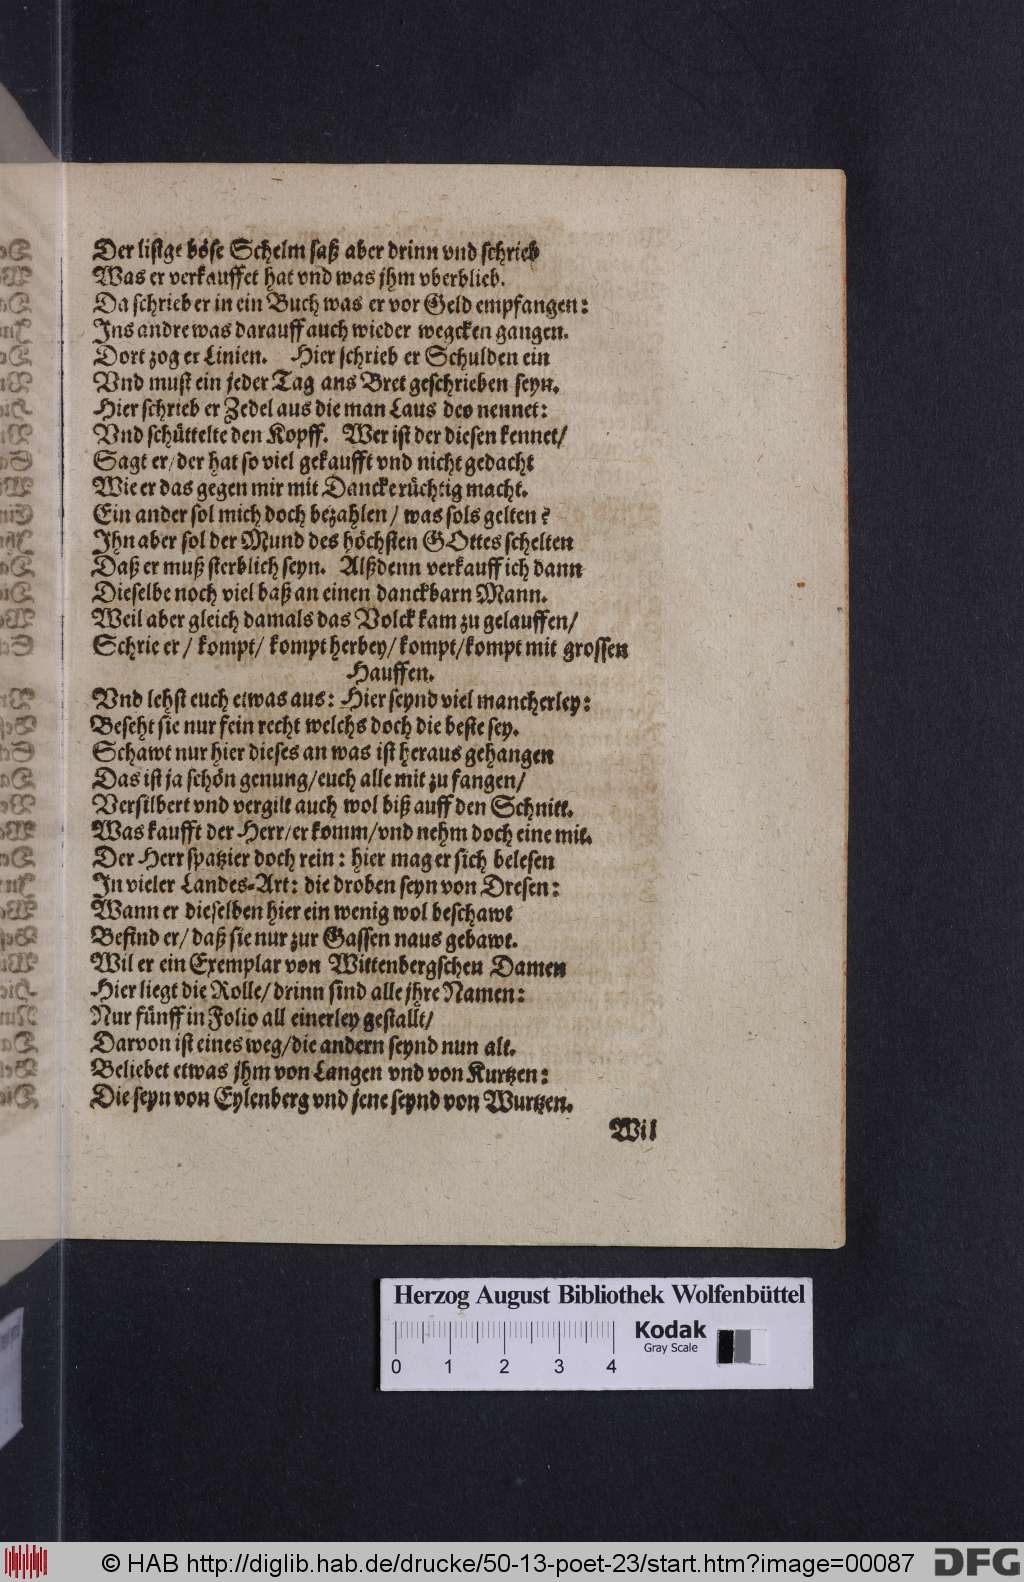 Der listge böse Schelm saß aber drinn vnd schrieb
Was er verkauffet hat vnd was jhm vberblieb.
Da schrieb er in ein Buch was er vor Geld empfangen:
Ins andre was darauff auch wieder wegcken gangen.
Dort zog er Linien. Hier schrieb er Schulden ein
Vnd must ein jeder Tag ans Bret geschrieben seyn.
Hier schrieb er Zedel aus die man Laus deo nennet:
Vnd schüttelte den Kopff. Wer ist der diesen kennet/
Sagt er/der hat so viel gekaufft vnd nicht gedacht
Wie er das gegen mir mit Dancke rüchtig macht.
Ein ander sol mich doch bezahlen/ was sols gelten?
Ihn aber sol der Mund des höchsten GOttes schelten
Daß er muß sterblich seyn. Alßdenn verkauff ich dann
Dieselbe noch viel baß an einen danckbarn Mann.
Weil aber gleich damals das Volck kam zu gelauffen/
Schrie er/ kompt/ kompt herbey/ kompt/kompt mit grossen
Hauffen.
Vnd lehst euch etwas aus: Hier seynd viel mancherley:
Beseht sie nur fein recht welchs doch die beste sey.
Schawt nur hier dieses an was ist heraus gehangen
Das ist ja schön genung/euch alle mit zu fangen/
Versilbert vnd vergilt auch wol biß auff den Schnitt.
Was kaufft der Herr/er komm/vnd nehm doch eine mit.
Der Herr spatzier doch rein: hier mag er sich belesen
In vieler Landes-Art: die droben seyn von Dresen:
Wann er dieselben hier ein wenig wol beschawt
Befind er/ daß sie nur zur Gassen naus gebawt.
Wil er ein Exemplar von Wittenbergschen Damen
Hier liegt die Rolle/ drinn sind alle jhre Namen:
Nur fünff in Folio all einerley gestallt/
Darvon ist eines weg/die andern seynd nun alt.
Beliebet etwas jhm von Langen vnd von Kurtzen:
Die seyn von Eylenberg vnd jene seynd von Wurtzen.
Wil
Herzog August Bibliothek Wolfenbüttel
Kodak
Gray Scale
0 1 2 3 4
© HAB http://diglib.hab.de/drucke/50-13-poet-23/start.htm?image=00087
DFG